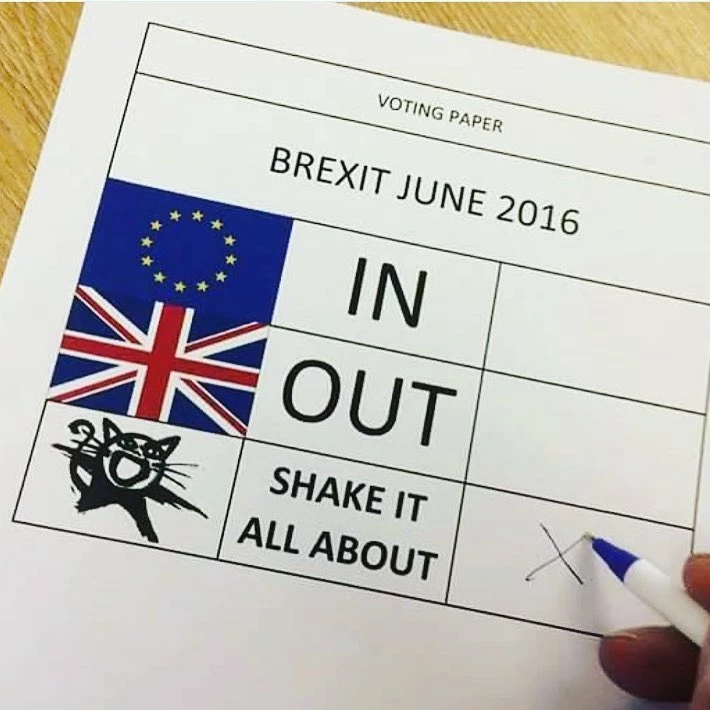 VOTING PAPER
BREXIT JUNE 2016
IN
OUT
SHAKE IT
ALL ABOUT
X